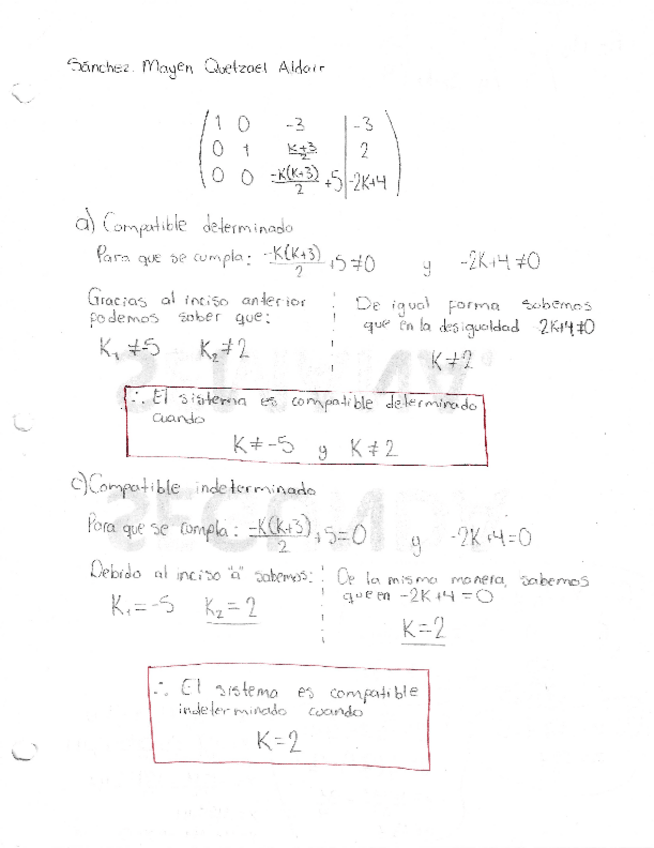 Sánchez Mayen Quetzael Aldair
1 0 -3 | -3
0 1 K+3/2 | 2
0 0 -K(K+3)/2 +5 | -2K+4
a) Compatible determinado
Para que se cumpla: -K(K+3)/2 +5≠0 y -2K+4≠0
Gracias al inciso anterior
podemos saber que:
K₁≠-5 K₂≠2
De igual forma sabemos
que en la desigualdad -2K+4≠0
K≠2
∴ El sistema es compatible determinado
cuando
K≠-5 y K≠2
c) Compatible indeterminado
Para que se cumpla: -K(K+3)/2 +5=0 y -2K+4=0
Debido al inciso "a" sabemos:
K₁=-5 K₂=2
De la misma manera, sabemos
que en -2K+4=0
K=2
∴ El sistema es compatible
indeterminado cuando
K=2